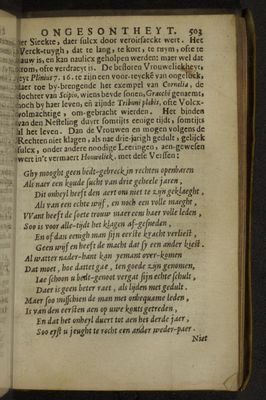 ONGESONTHEYT. 503
der Sieckte, daer sulcx door veroirsaeckt wort. Het
Werck-tuygh, dat te lang, te kort, te ruym, ofte te
nauw is, en kan naulicx geholpen werden: maer wel dat
krom, ofte verdraeyt is. De besloten Vrouwelickheyt,
seyt Plinius 7. 16. te zijn een voor-teycké van ongelock,
daer toe by-brengende het exempel van Cornelia, de
dochter van Scipio, wiens beyde soons, Gracchi genaemt,
noch by haer leven, en zijnde Tribuni plebis, ofte Volcx-
volmachtige, om-gebracht wierden. Het binden
van den Nesteling duyrt somtijts eenige tijdt, somtijts
al het leven. Dan de Vrouwen en mogen volgens de
Rechten niet klagen, als nae drie-jarigh gedult, gelijck
sulcx, onder andere noodige Leeringen, aen-gewesen
wert in't vermaert Houwelick, met dese Versen:
Ghy mooght geen bedt-gebreck in rechten openbaren
Als naer een koude sucht van drie geheele jaren;
Dit onheyl heeft den aert om niet te zijn geklaeght,
Als van een echte wijf, en noch een volle maeght,
VVant heeft de soete trouw maer eens haer volle leden,
Soo is voor alle-tijdt het klagen af-gesneden,
En of dan eensgh man sijn eerste kracht verliest,
Geen wijf en heeft de macht dat sy een ander kiest.
Al watter nader-hant kan yemant over-komen
Dat moet, hoe dattet gae, ten goede zijn genomen,
Iae schoon u bedt-genoot vergat sijn echte schult,
Daer is geen beter raet, als lijden met gedult.
Maer soo misschien de man met onbequame leden,
Is van den eersten aen op uwe konts getreden,
En dat het onheyl duert tot aen het derde jaer,
Soo eyst u jeught te recht een ander weder-paer.
Niet